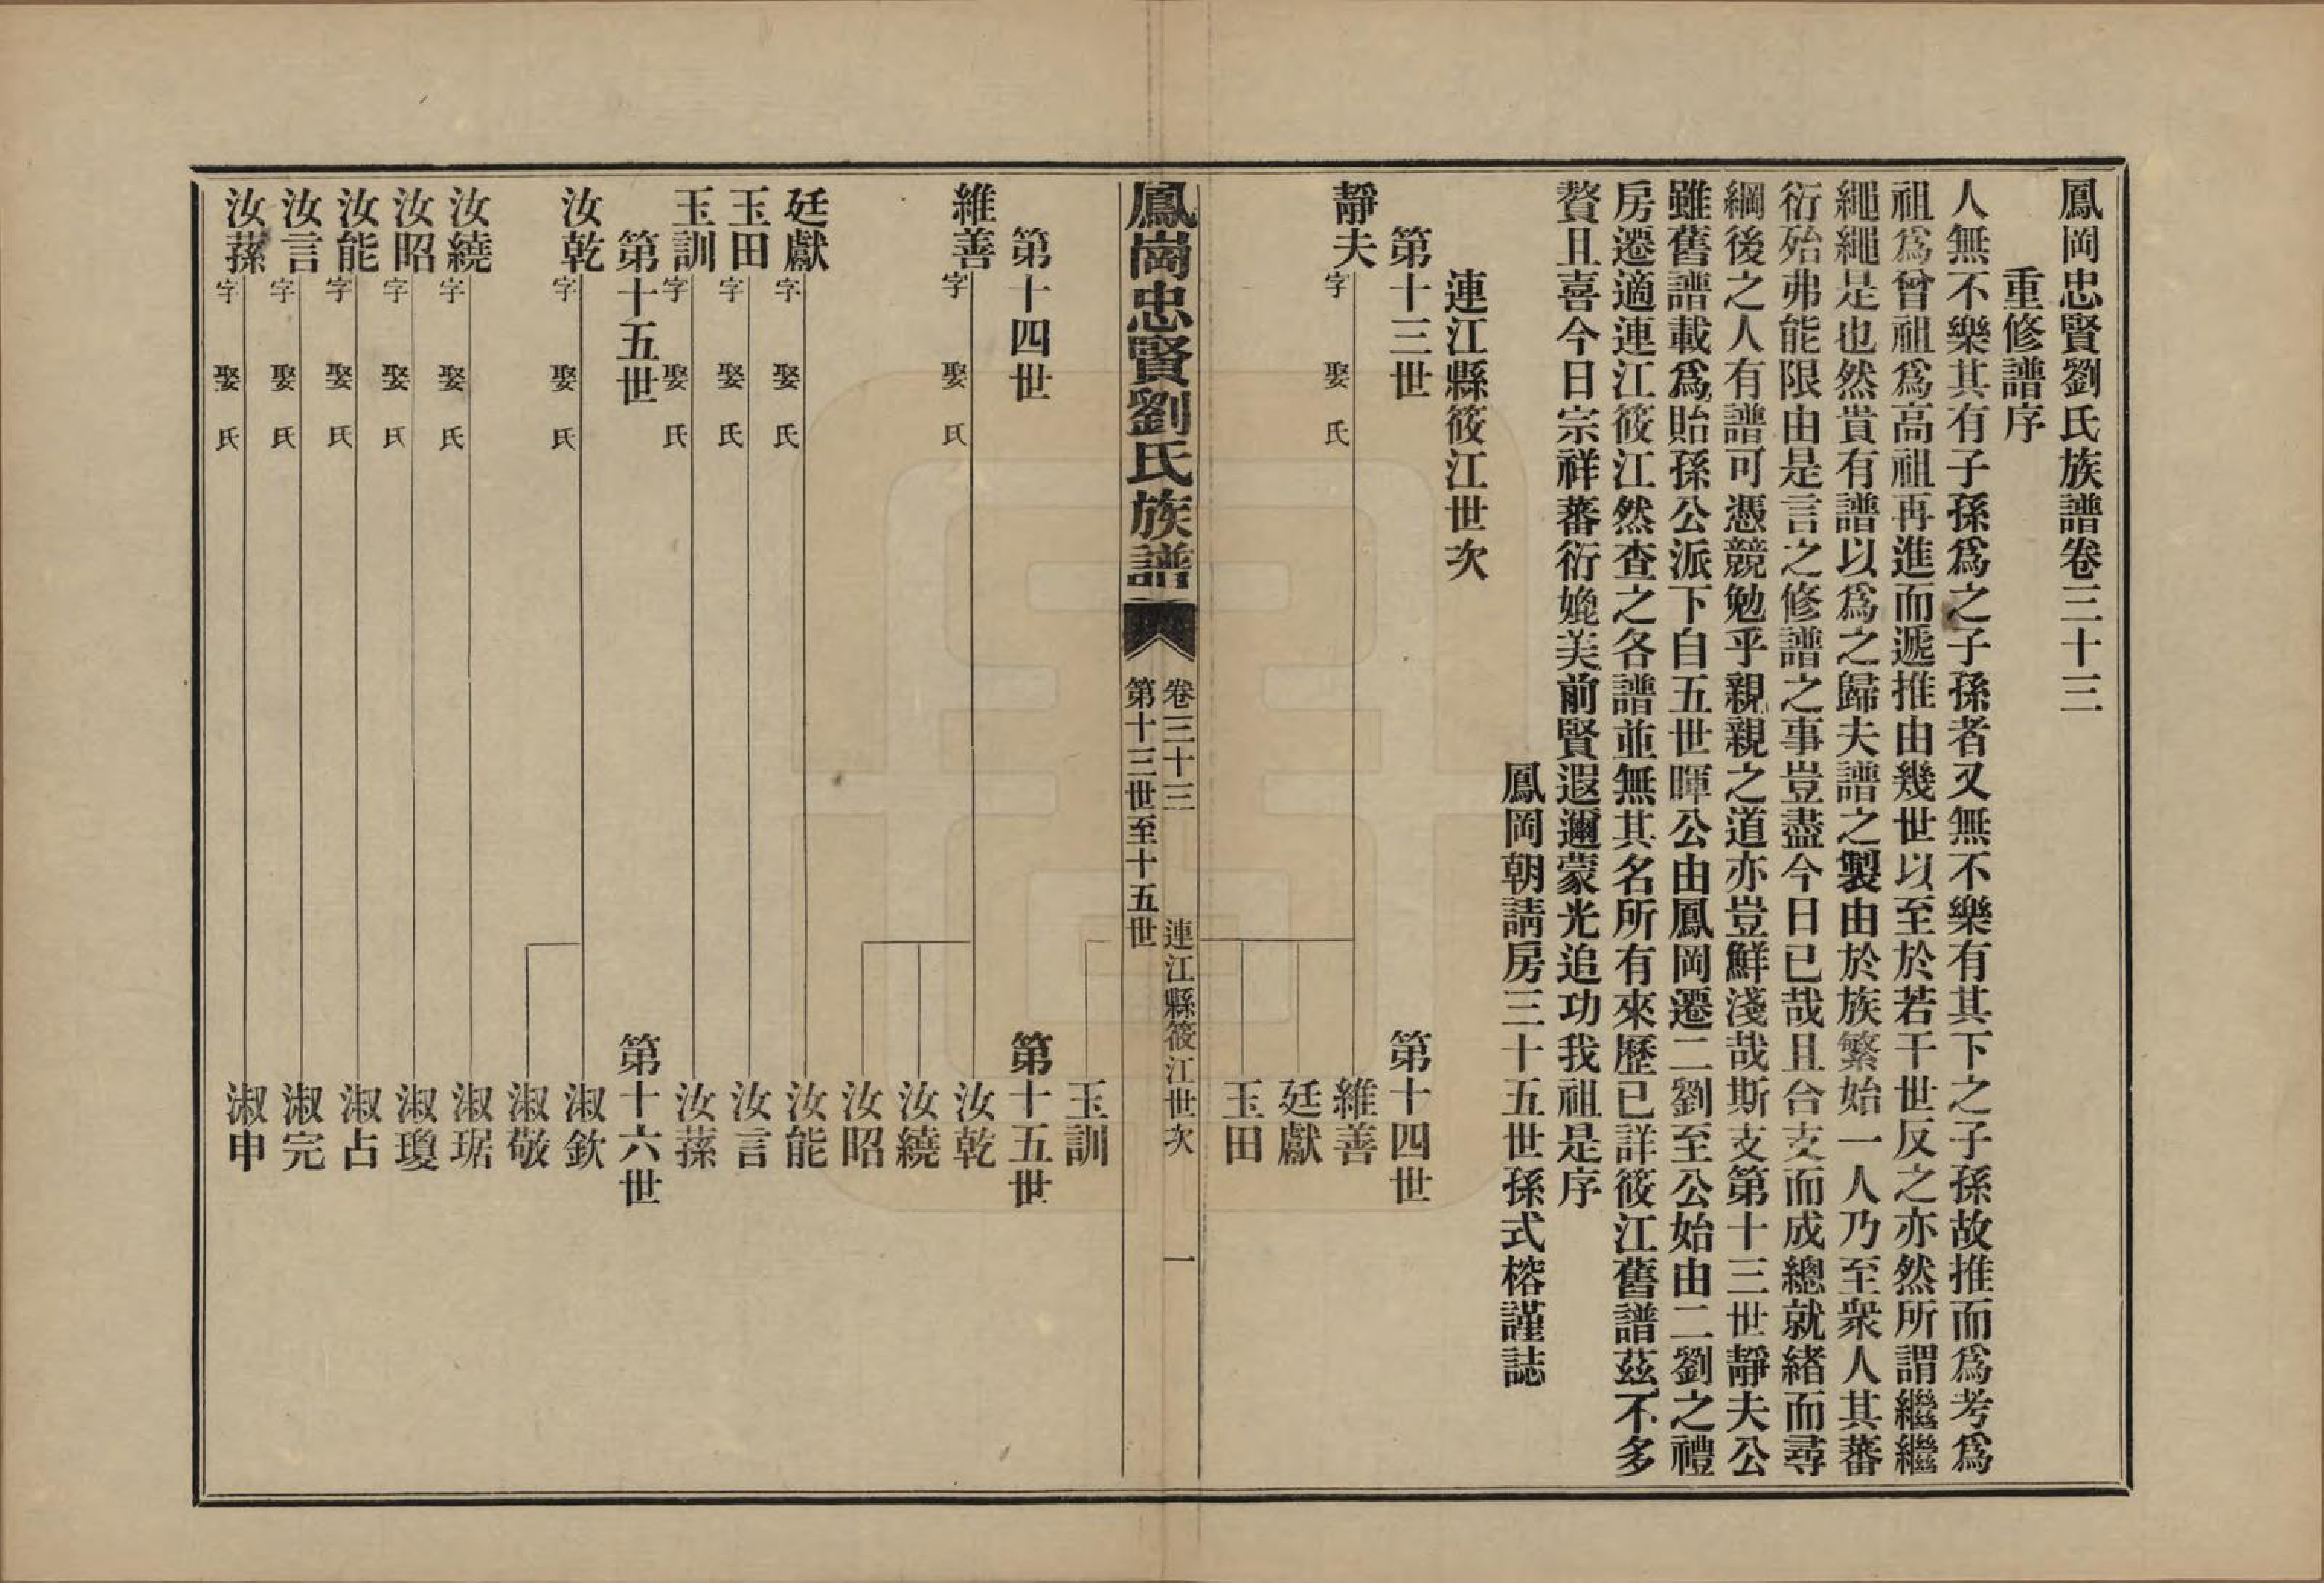 鳳岡忠賢劉氏族譜卷三十三
重修譜序
人無不樂其有子孫爲之子孫者又無不樂有其下之子孫故推而爲考爲
祖爲曾祖爲高祖再進而遞推由幾世以至於若干世反之亦然所謂繼繼
繩繩是也然貴有譜以爲之歸夫譜之製由於族繁始一人乃至衆人其蕃
衍殆弗能限由是言之修譜之事豈盡今日已哉且合支而成總就緒而尋
綱後之人有譜可憑競勉乎親親之道亦豈鮮淺哉斯支第十三世靜夫公
雖舊譜載爲貽孫公派下自五世暉公由鳳岡遷二劉至公始由二劉之禮
房遷適連江筱江然查之各譜並無其名所有來歷已詳筱江舊譜茲不多
贅且喜今日宗祥蕃衍媲美前賢遐邇蒙光追功我祖是序
鳳岡朝請房三十五世孫式榕謹誌
連江縣筱江世次
第十三世 第十四世
靜夫 字 娶 氏 維善
廷獻
玉田
鳳崗忠賢劉氏族譜 卷三十三 連江縣筱江世次 一
第十三世至十五世
玉訓
第十四世 第十五世
維善 字 娶 氏 汝乾
汝繞
汝昭
廷獻 字 娶 氏 汝能
玉田 字 娶 氏 汝言
玉訓 字 娶 氏 汝蓀
第十五世 第十六世
汝乾 字 娶 氏 淑欽
淑敬
汝繞 字 娶 氏 淑琚
汝昭 字 娶 氏 淑瓊
汝能 字 娶 氏 淑占
汝言 字 娶 氏 淑完
汝蓀 字 娶 氏 淑申